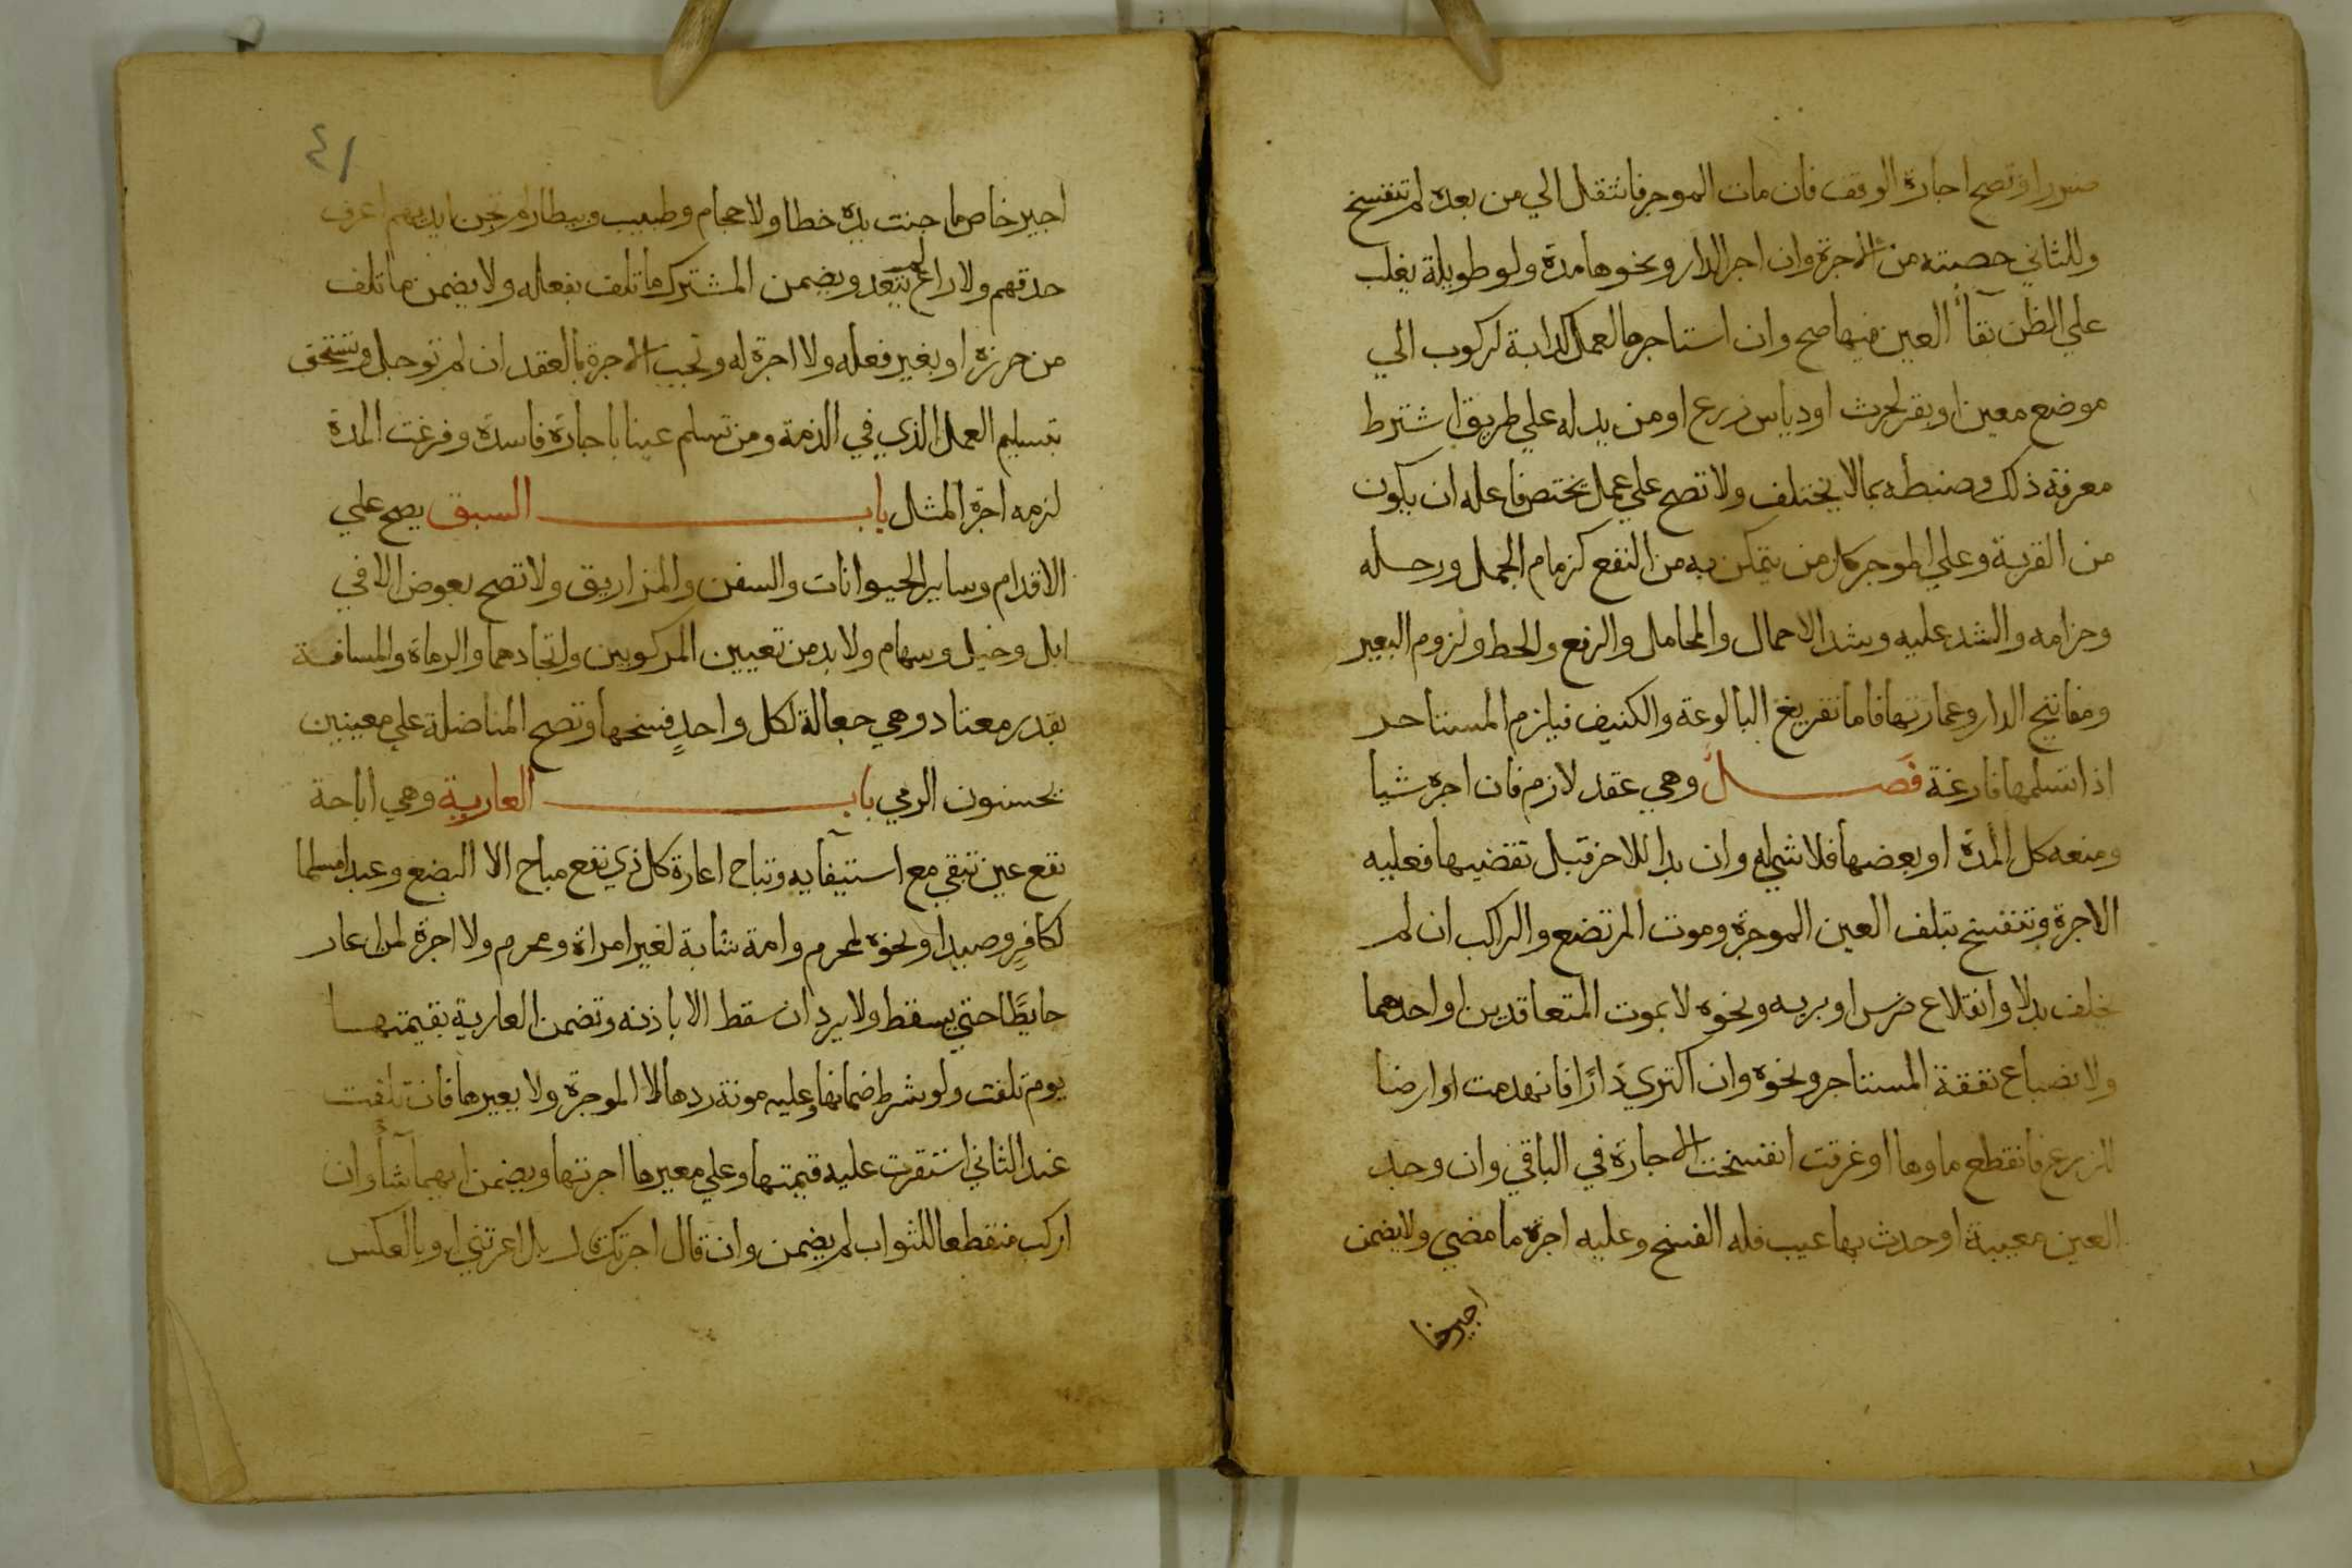 ضررا وتصح اجارة الوقف فان مات الموجر فانتقل الي من بعده لم تنفسخ
وللثاني حصته من الاجرة وان اجر الدار ونحوها مدة ولو طويلة يغلب
علي الظن بقآ العين فيها صح وان استاجرها لعمل كدابة لركوب الي
موضع معين او بقر لحرث او دياس زرع او من يدله علي طريق اشترط
معرفة ذلك وضبطه بما لا يختلف ولا تصح علي عمل يختص فاعله ان يكون
من القربة وعلي الموجر كل من يتمكن به من النفع كزمام الجمل ورحله
وحزامه والشد عليه وشد الاحمال والمحامل والرفع والحط ولزوم البعير
ومفاتيح الدار وعمارتها فاما تفريغ البالوعة والكنيف فيلزم المستاجر
اذا تسلمها فارغة فصل وهي عقد لازم فان اجره شيا
ومنعه كل المدة او بعضها فلا شي له وان بدا للاخر قبل تقضيها فعليه
الاجرة وتنفسخ بتلف العين الموجرة وموت المرتضع والراكب ان لم
يخلف بدلا وانقلاع ضرس او بريه ونحوه لا بموت المتعاقدين او احدهما
ولا بضياع نفقة المستاجر ونحوه وان اكتري دارا فانهدمت او ارضا
للزرع فانقطع ماوها او غرقت انفسخت الاجارة في الباقي وان وجد
العين معيبة او حدث بها عيب فله الفسخ وعليه اجرة ما مضي ولا يضمن
اجير خا
٤١
اجير خاص ما جنت يده خطا ولا حجام وطبيب وبيطار لم تجن ايديهم اعرف
حدقهم ولا راع لم يتعد ويضمن المشترك ما تلف بفعله ولا يضمن ما تلف
من حرزه او بغير فعله ولا اجرة له وتجب الاجرة بالعقد ان لم توجل وتستحق
بتسليم العمل الذي في الذمة ومن تسلم عينا باجارة فاسدة وفرغت المدة
لزمه اجرة المثل باب السبق يصح علي
الاقدام وساير الحيوانات والسفن والمزاريق ولا تصح بعوض الا في
ابل وخيل وسهام ولا بد من تعيين المركوبين واتحادهما والرماة والمسافة
بقدر معتاد وهي جعالة لكل واحد فسخها وتصح المناضلة علي معينين
يحسنون الرمي باب العارية وهي اباحة
نفع عين تبقي مع استيفآيه وتباح اعارة كل ذي نفع مباح الا البضع وعبدا مسلما
لكافر وصيدا ونحوه لمحرم وامة شابة لغير امراة ومحرم ولا اجرة لمن اعار
حايطا حتي يسقط ولا يرد ان سقط الا باذنه وتضمن العارية بقيمتها
يوم تلفت ولو شرط ضمانها وعليه مونة ردها لا الموجرة ولا يعيرها فان تلفت
عند الثاني استقرت عليه قيمتها وعلي معيرها اجرتها ويضمن ايهما شآ وان
اركب منقطعا للثواب لم يضمن وان قال اجرتك قال بل اعرتني او بالعكس